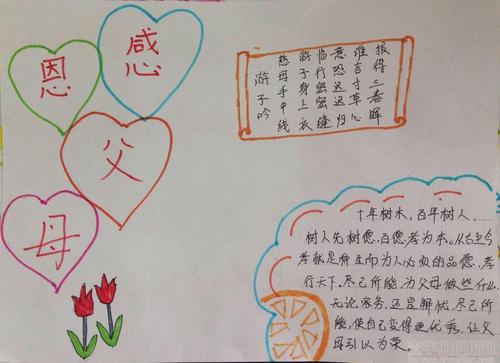 感
恩
父
母
游子吟
慈母手中线
游子身上衣
临行密密缝
意恐迟迟归
谁言寸草心
报得三春晖
十年树木,百年树人,
树人先树德,百德孝为本。从古至今
孝就是种立而为人必有的品德,孝
行天下,尽己所能,为父母做些什么,
无论家务,还是解忧,尽己所
能,使自己变得更优秀,让父
母引以为荣。